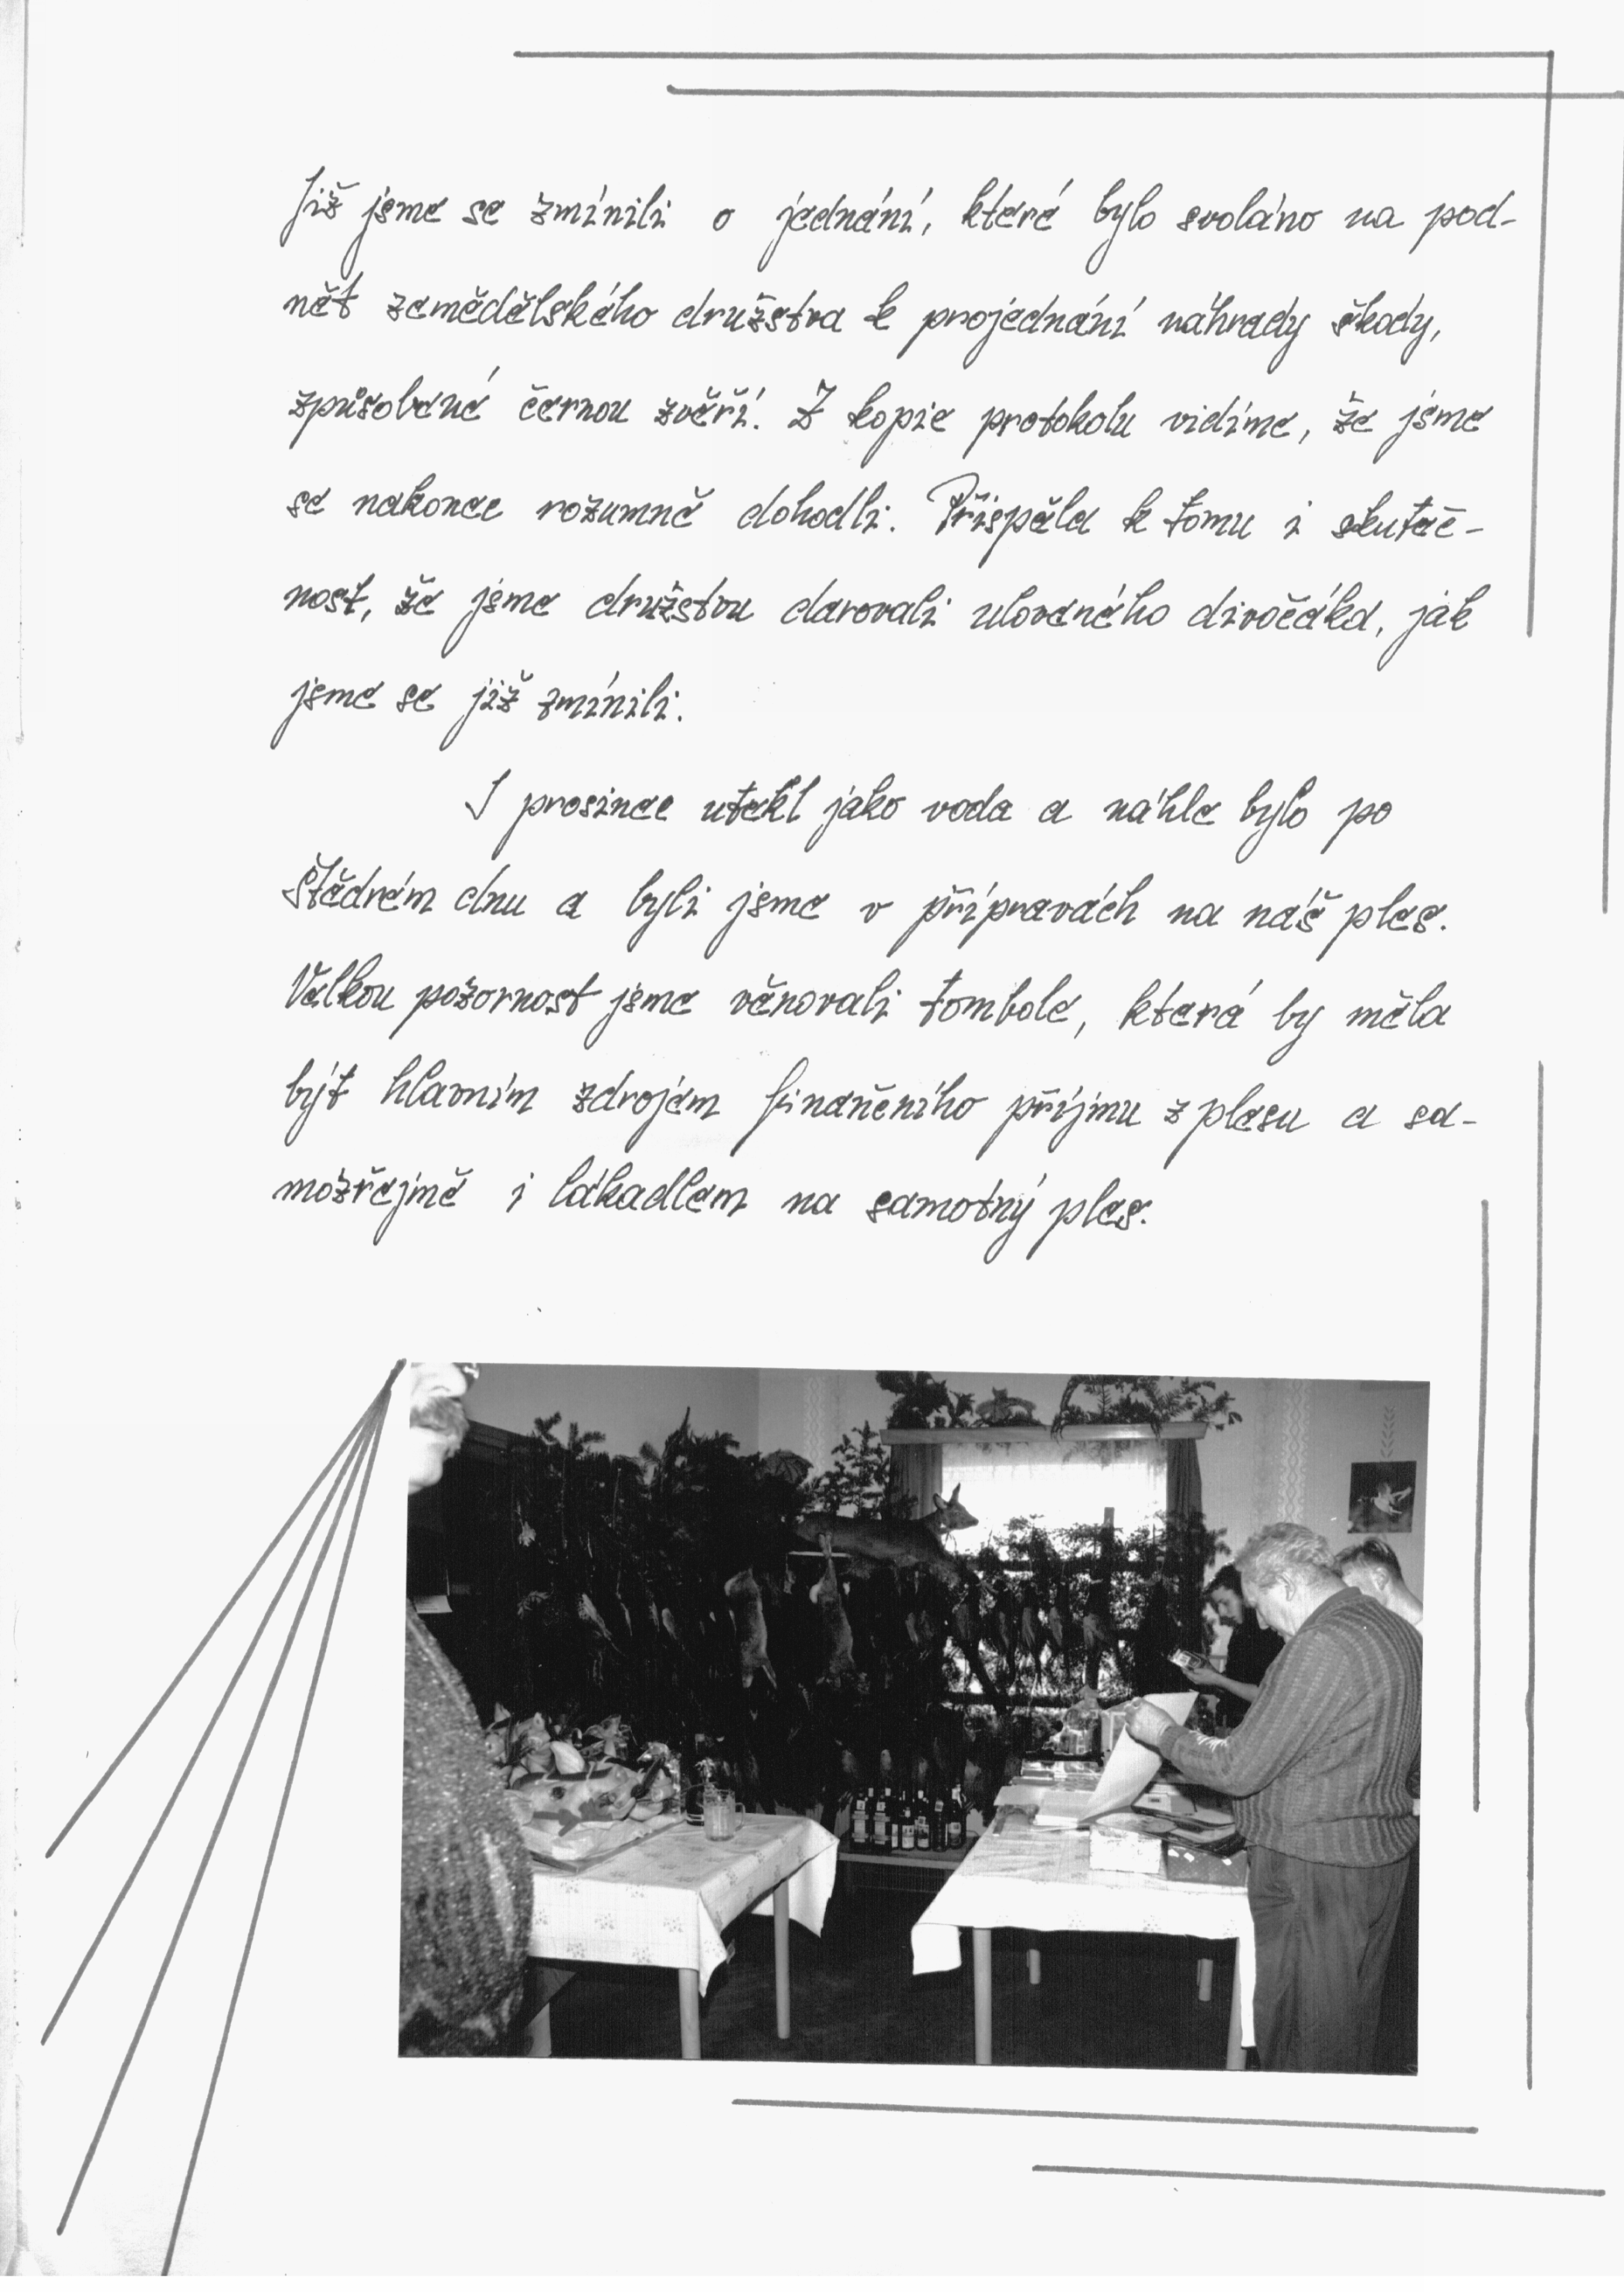 Již jsme se zmínili o jednání, které bylo svoláno na pod-
nět zemědělského družstva k projednání náhrady škody,
způsobené černou zvěří. Z kopie protokolu vidíme, že jsme
se nakonec rozumně dohodli. Přispěla k tomu i skuteč-
nost, že jsme družstvu darovali uloveného divočáka, jak
jsme se již zmínili.
I prosinec utekl jako voda a náhle bylo po
Štědrém dnu a byli jsme v přípravách na náš ples.
Velkou pozornost jsme věnovali tombole, která by měla
být hlavním zdrojem finančního příjmu z plesu a sa-
mozřejmě i lákadlem na samotný ples.